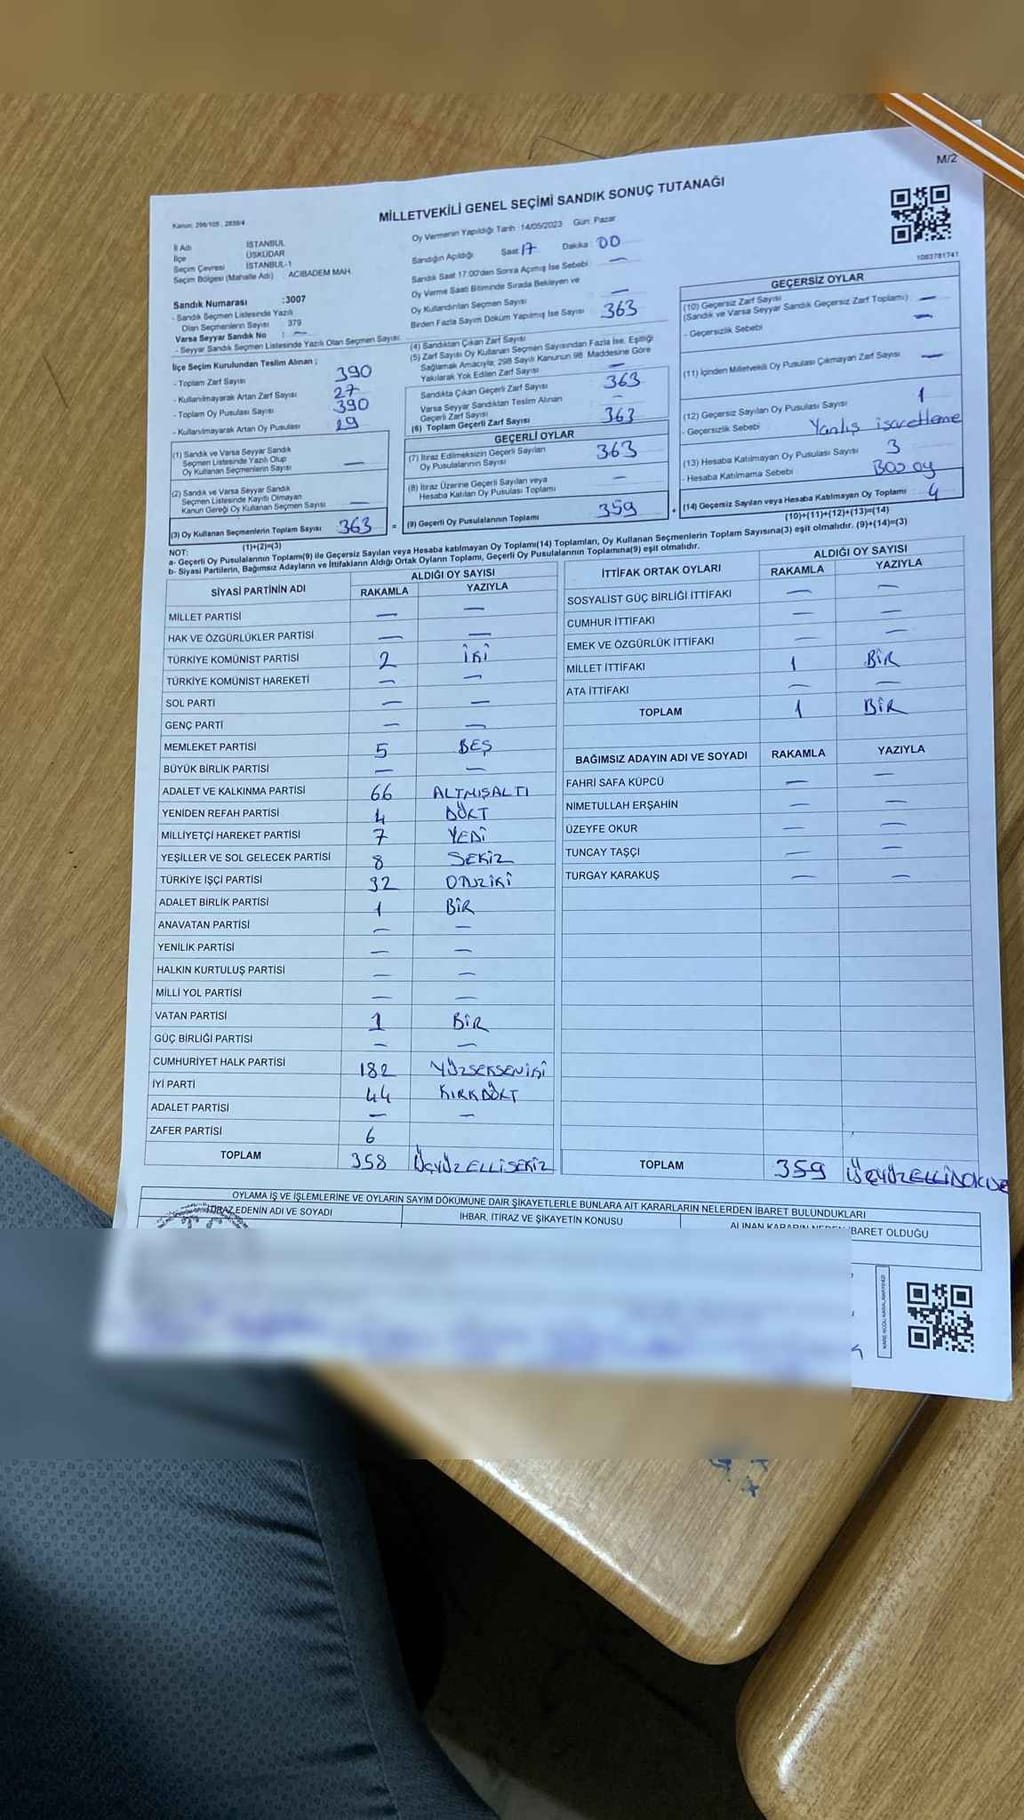 M/2
MİLLETVEKİLİ GENEL SEÇİMİ SANDIK SONUÇ TUTANAĞI
Kanun: 298/105 , 2839/4
İl Adı İSTANBUL
İlçe ÜSKÜDAR
Seçim Çevresi İSTANBUL-1
Seçim Bölgesi (Mahalle Adı) : ACIBADEM MAH.
Sandık Numarası :3007
- Sandık Seçmen Listesinde Yazılı
Olan Seçmenlerin Sayısı 379
Varsa Seyyar Sandık No : —
- Seyyar Sandık Seçmen Listesinde Yazılı Olan Seçmen Sayısı:
İlçe Seçim Kurulundan Teslim Alınan ;
- Toplam Zarf Sayısı 390
- Kullanılmayarak Artan Zarf Sayısı 27
- Toplam Oy Pusulası Sayısı 390
- Kullanılmayarak Artan Oy Pusulası 29
(1) Sandık ve Varsa Seyyar Sandık
Seçmen Listesinde Yazılı Olup
Oy Kullanan Seçmenlerin Sayısı —
(2) Sandık ve Varsa Seyyar Sandık
Seçmen Listesinde Kayıtlı Olmayan
Kanun Gereği Oy Kullanan Seçmen Sayısı —
(3) Oy Kullanan Seçmenlerin Toplam Sayısı 363 =
(1)+(2)=(3)
Oy Vermenin Yapıldığı Tarih :14/05/2023 Gün: Pazar
Sandığın Açıldığı Saat 17 Dakika 00
Sandık Saat 17:00'den Sonra Açımış İse Sebebi —
Oy Verme Saati Bitiminde Sırada Bekleyen ve
Oy Kullandırılan Seçmen Sayısı —
Birden Fazla Sayım Döküm Yapılmış İse Sayısı 363
(4) Sandıktan Çıkan Zarf Sayısı
(5) Zarf Sayısı Oy Kullanan Seçmen Sayısından Fazla İse, Eşitliği
Sağlamak Amacıyla, 298 Sayılı Kanunun 98. Maddesine Göre
Yakılarak Yok Edilen Zarf Sayısı —
Sandıkta Çıkan Geçerli Zarf Sayısı 363
Varsa Seyyar Sandıktan Teslim Alınan
Geçerli Zarf Sayısı —
(6) Toplam Geçerli Zarf Sayısı 363
GEÇERLİ OYLAR
(7) İtiraz Edilmeksizin Geçerli Sayılan
Oy Pusulalarının Sayısı 363
(8) İtiraz Üzerine Geçerli Sayılan veya
Hesaba Katılan Oy Pusulası Toplamı —
(9) Geçerli Oy Pusulalarının Toplamı 359 +
1083781741
GEÇERSİZ OYLAR
(10) Geçersiz Zarf Sayısı —
(Sandık ve Varsa Seyyar Sandık Geçersiz Zarf Toplamı) —
- Geçersizlik Sebebi
(11) İçinden Milletvekili Oy Pusulası Çıkmayan Zarf Sayısı —
(12) Geçersiz Sayılan Oy Pusulası Sayısı 1
- Geçersizlik Sebebi Yanlış işaretleme
(13) Hesaba Katılmayan Oy Pusulası Sayısı 3
- Hesaba Katılmama Sebebi Boş oy
(14) Geçersiz Sayılan veya Hesaba Katılmayan Oy Toplamı 4
(10)+(11)+(12)+(13)=(14)
NOT:
a- Geçerli Oy Pusulalarının Toplamı(9) ile Geçersiz Sayılan veya Hesaba katılmayan Oy Toplamı(14) Toplamları, Oy Kullanan Seçmenlerin Toplam Sayısına(3) eşit olmalıdır. (9)+(14)=(3)
b- Siyasi Partilerin, Bağımsız Adayların ve İttifakların Aldığı Ortak Oyların Toplamı, Geçerli Oy Pusulalarının Toplamına(9) eşit olmalıdır.
SİYASİ PARTİNİN ADI ALDIĞI OY SAYISI
RAKAMLA YAZIYLA
MİLLET PARTİSİ — —
HAK VE ÖZGÜRLÜKLER PARTİSİ — —
TÜRKİYE KOMÜNİST PARTİSİ 2 İKİ
TÜRKİYE KOMÜNİST HAREKETİ — —
SOL PARTİ — —
GENÇ PARTİ — —
MEMLEKET PARTİSİ 5 BEŞ
BÜYÜK BİRLİK PARTİSİ — —
ADALET VE KALKINMA PARTİSİ 66 ALTMIŞALTI
YENİDEN REFAH PARTİSİ 4 DÖRT
MİLLİYETÇİ HAREKET PARTİSİ 7 YEDİ
YEŞİLLER VE SOL GELECEK PARTİSİ 8 SEKİZ
TÜRKİYE İŞÇİ PARTİSİ 32 OTUZİKİ
ADALET BİRLİK PARTİSİ 1 BİR
ANAVATAN PARTİSİ — —
YENİLİK PARTİSİ — —
HALKIN KURTULUŞ PARTİSİ — —
MİLLİ YOL PARTİSİ — —
VATAN PARTİSİ 1 BİR
GÜÇ BİRLİĞİ PARTİSİ — —
CUMHURİYET HALK PARTİSİ 182 YÜZSEKSENİKİ
İYİ PARTİ 44 KIRKDÖRT
ADALET PARTİSİ — —
ZAFER PARTİSİ 6
TOPLAM 358 ÜÇYÜZELLİSEKİZ
İTTİFAK ORTAK OYLARI ALDIĞI OY SAYISI
RAKAMLA YAZIYLA
SOSYALİST GÜÇ BİRLİĞİ İTTİFAKI — —
CUMHUR İTTİFAKI — —
EMEK VE ÖZGÜRLÜK İTTİFAKI — —
MİLLET İTTİFAKI 1 BİR
ATA İTTİFAKI — —
TOPLAM 1 BİR
BAĞIMSIZ ADAYIN ADI VE SOYADI RAKAMLA YAZIYLA
FAHRİ SAFA KÜPCÜ — —
NİMETULLAH ERŞAHİN — —
ÜZEYFE OKUR — —
TUNCAY TAŞÇI — —
TURGAY KARAKUŞ — —
TOPLAM 359 ÜÇYÜZELLİDOKUZ
OYLAMA İŞ VE İŞLEMLERİNE VE OYLARIN SAYIM DÖKÜMÜNE DAİR ŞİKAYETLERLE BUNLARA AİT KARARLARIN NELERDEN İBARET BULUNDUKLARI
İTİRAZ EDENİN ADI VE SOYADI İHBAR, İTİRAZ VE ŞİKAYETİN KONUSU ALINAN KARARIN NEDEN İBARET OLDUĞU